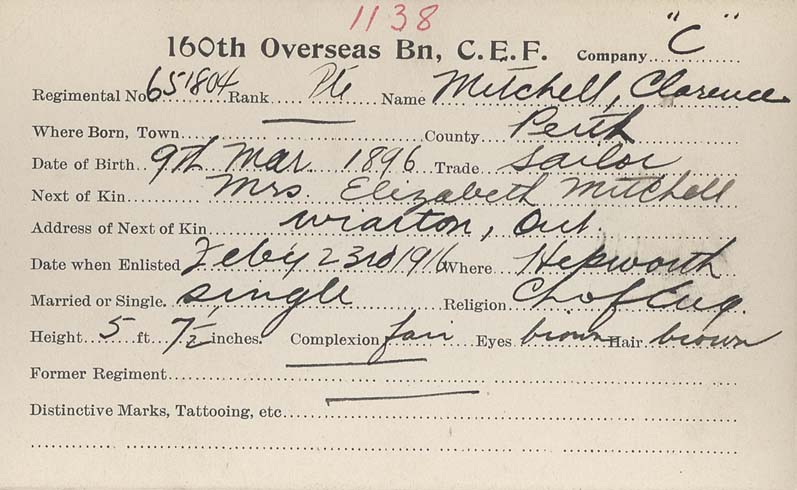 1138
160th Overseas Bn, C.E.F. Company "C"
Regimental No 651804 Rank Pte Name Mitchell, Clarence
Where Born, Town County Perth
Date of Birth 9th Mar. 1896 Trade Sailor
Next of Kin Mrs. Elizabeth Mitchell
Address of Next of Kin Wiarton, Ont.
Date when Enlisted Feby 23rd 1916 Where Hepworth
Married or Single. Single Religion Ch of Eng.
Height 5 ft. 7½ inches. Complexion fair Eyes brown Hair brown
Former Regiment
Distinctive Marks, Tattooing, etc